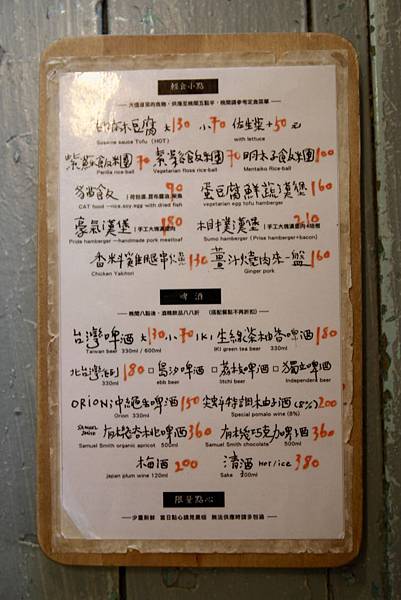 輕食小點
胡麻木豆腐 大130 小70 佐生菜+50元
Sesame sauce Tofu (HOT) with lettuce
紫蘇飯糰 70 紫鬆飯糰 70 明太子飯糰 100
Perilla rice-ball Vegetarian floss rice-ball Mentaiko Rice-ball
90 蛋豆腐鮮蔬漢堡 160
CAT food ---rice,soy egg with dried fish vegetarian egg tofu hamberger
豪氣漢堡 180 相撲漢堡 210
Pride hamberger ---handmade pork meatloaf Sumo hamberger (Pride hamberger+bacon)
香料雞腿串燒 130 薑汁燒肉一盤 160
Chicken Yakitori Ginger pork
啤酒
晚間八點後,酒精飲品八八折 (搭配餐點不再折扣)
台灣啤酒 大130 小70 IKI 生綠茶柚香啤酒 180
Taiwan beer 330ml / 600ml IKI green tea beer 330ml
180 □ 島汐啤酒 □ 荔枝啤酒 □ 獨立啤酒
330ml ebb beer litchi beer Independent beer
ORION 沖繩生啤酒 150 特調柚子酒 (8%) 200
Orion 330ml Special pomalo wine (8%)
SAMUEL SMITH 有機杏桃啤酒 360 有機巧克力啤酒 360
Samuel Smith organic apricot 500ml Samuel Smith chocolate 500ml
梅酒 200 清酒 Hot/ice 380
Japan plum wine 120ml Sake 300ml
限量點心
少量新鮮 當日點心請見黑板 無法供應時請多包涵